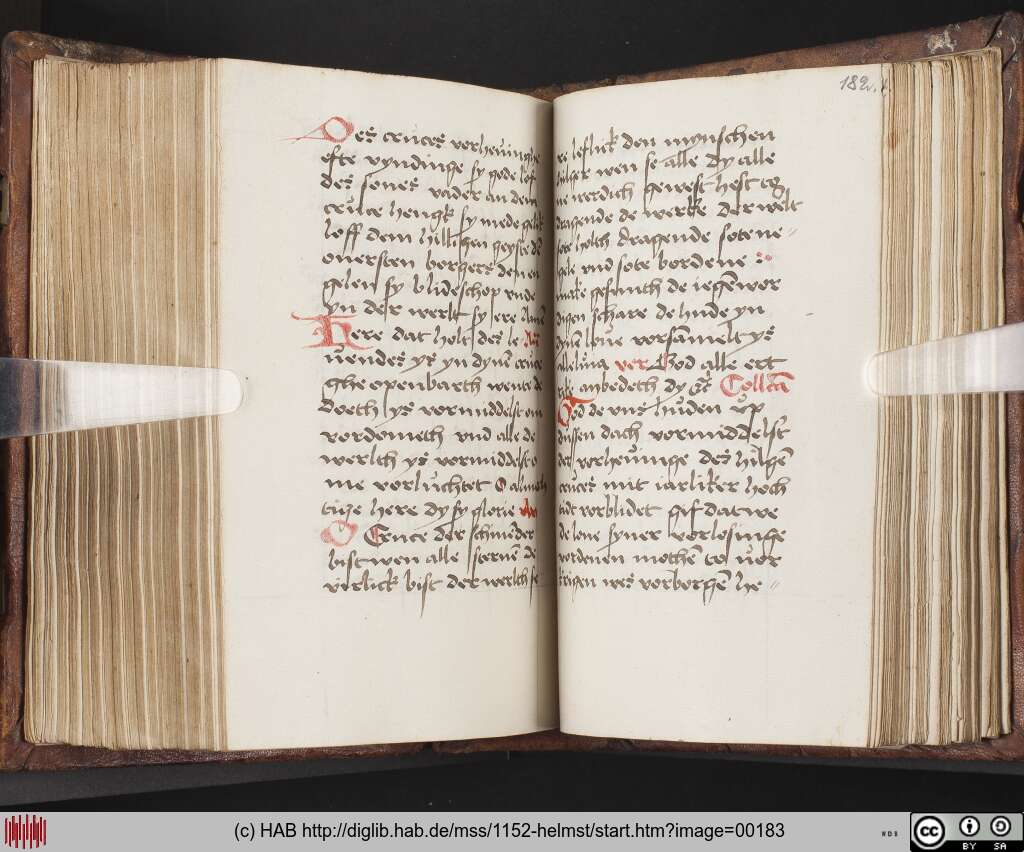 Des cruces vorheuinghe
efte vyndinge sy gode lof
des sones vader an dem
cruce hengk sy mede gelik
loff dem hilligen geyste de
ouersten borgers denen
gelen sy blideschop vnde
yn der werlt sy ere Amen
Here dat holt des le An
uendes ys yn dynem cruce
ghe openbarth wente de
doeth ys vormiddelst em
vordometh vnd alle de
werlth ys vormiddelst o
me vorluchtet O almech
tige here dy sy glorie An
O Cruce der schinder
bist wen alle sternen de
virlick bist der werlth se
182.
re leflick den mynschen
hilger wen se alle dy alle
ne werdich gewest hest to
dragende de werke der werlt
sote holth dragende sote ne
gele vnd sote bordene
make gesunth de iegenwor
digen schare de hude yn
dynem loue vorsamelt ys
alleluia ver God alle ert
rike anbedeth dy Collecta
God de vns huden vp
dussen dach vormiddelst
der vorheuinge des hilgen
cruces mit iarliker hoch
tidt vorblidet gif dat we
de lone syner vorlosinge
vordenen mothen to vor
krigen wes vorborgen he
(c) HAB http://diglib.hab.de/mss/1152-helmst/start.htm?image=00183
WDB
cc
BY SA